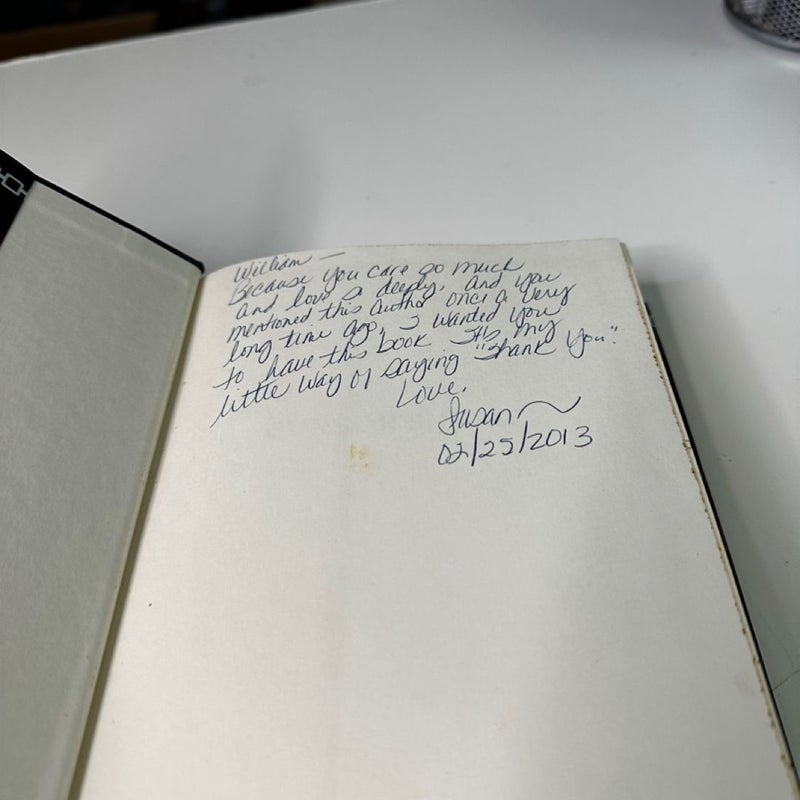 William —
Because you care so much
and love so deeply, and you
mentioned this author once a very
long time ago, I wanted you
to have this book It's my
little way of saying "Thank You".
Love,
Susan
02/25/2013